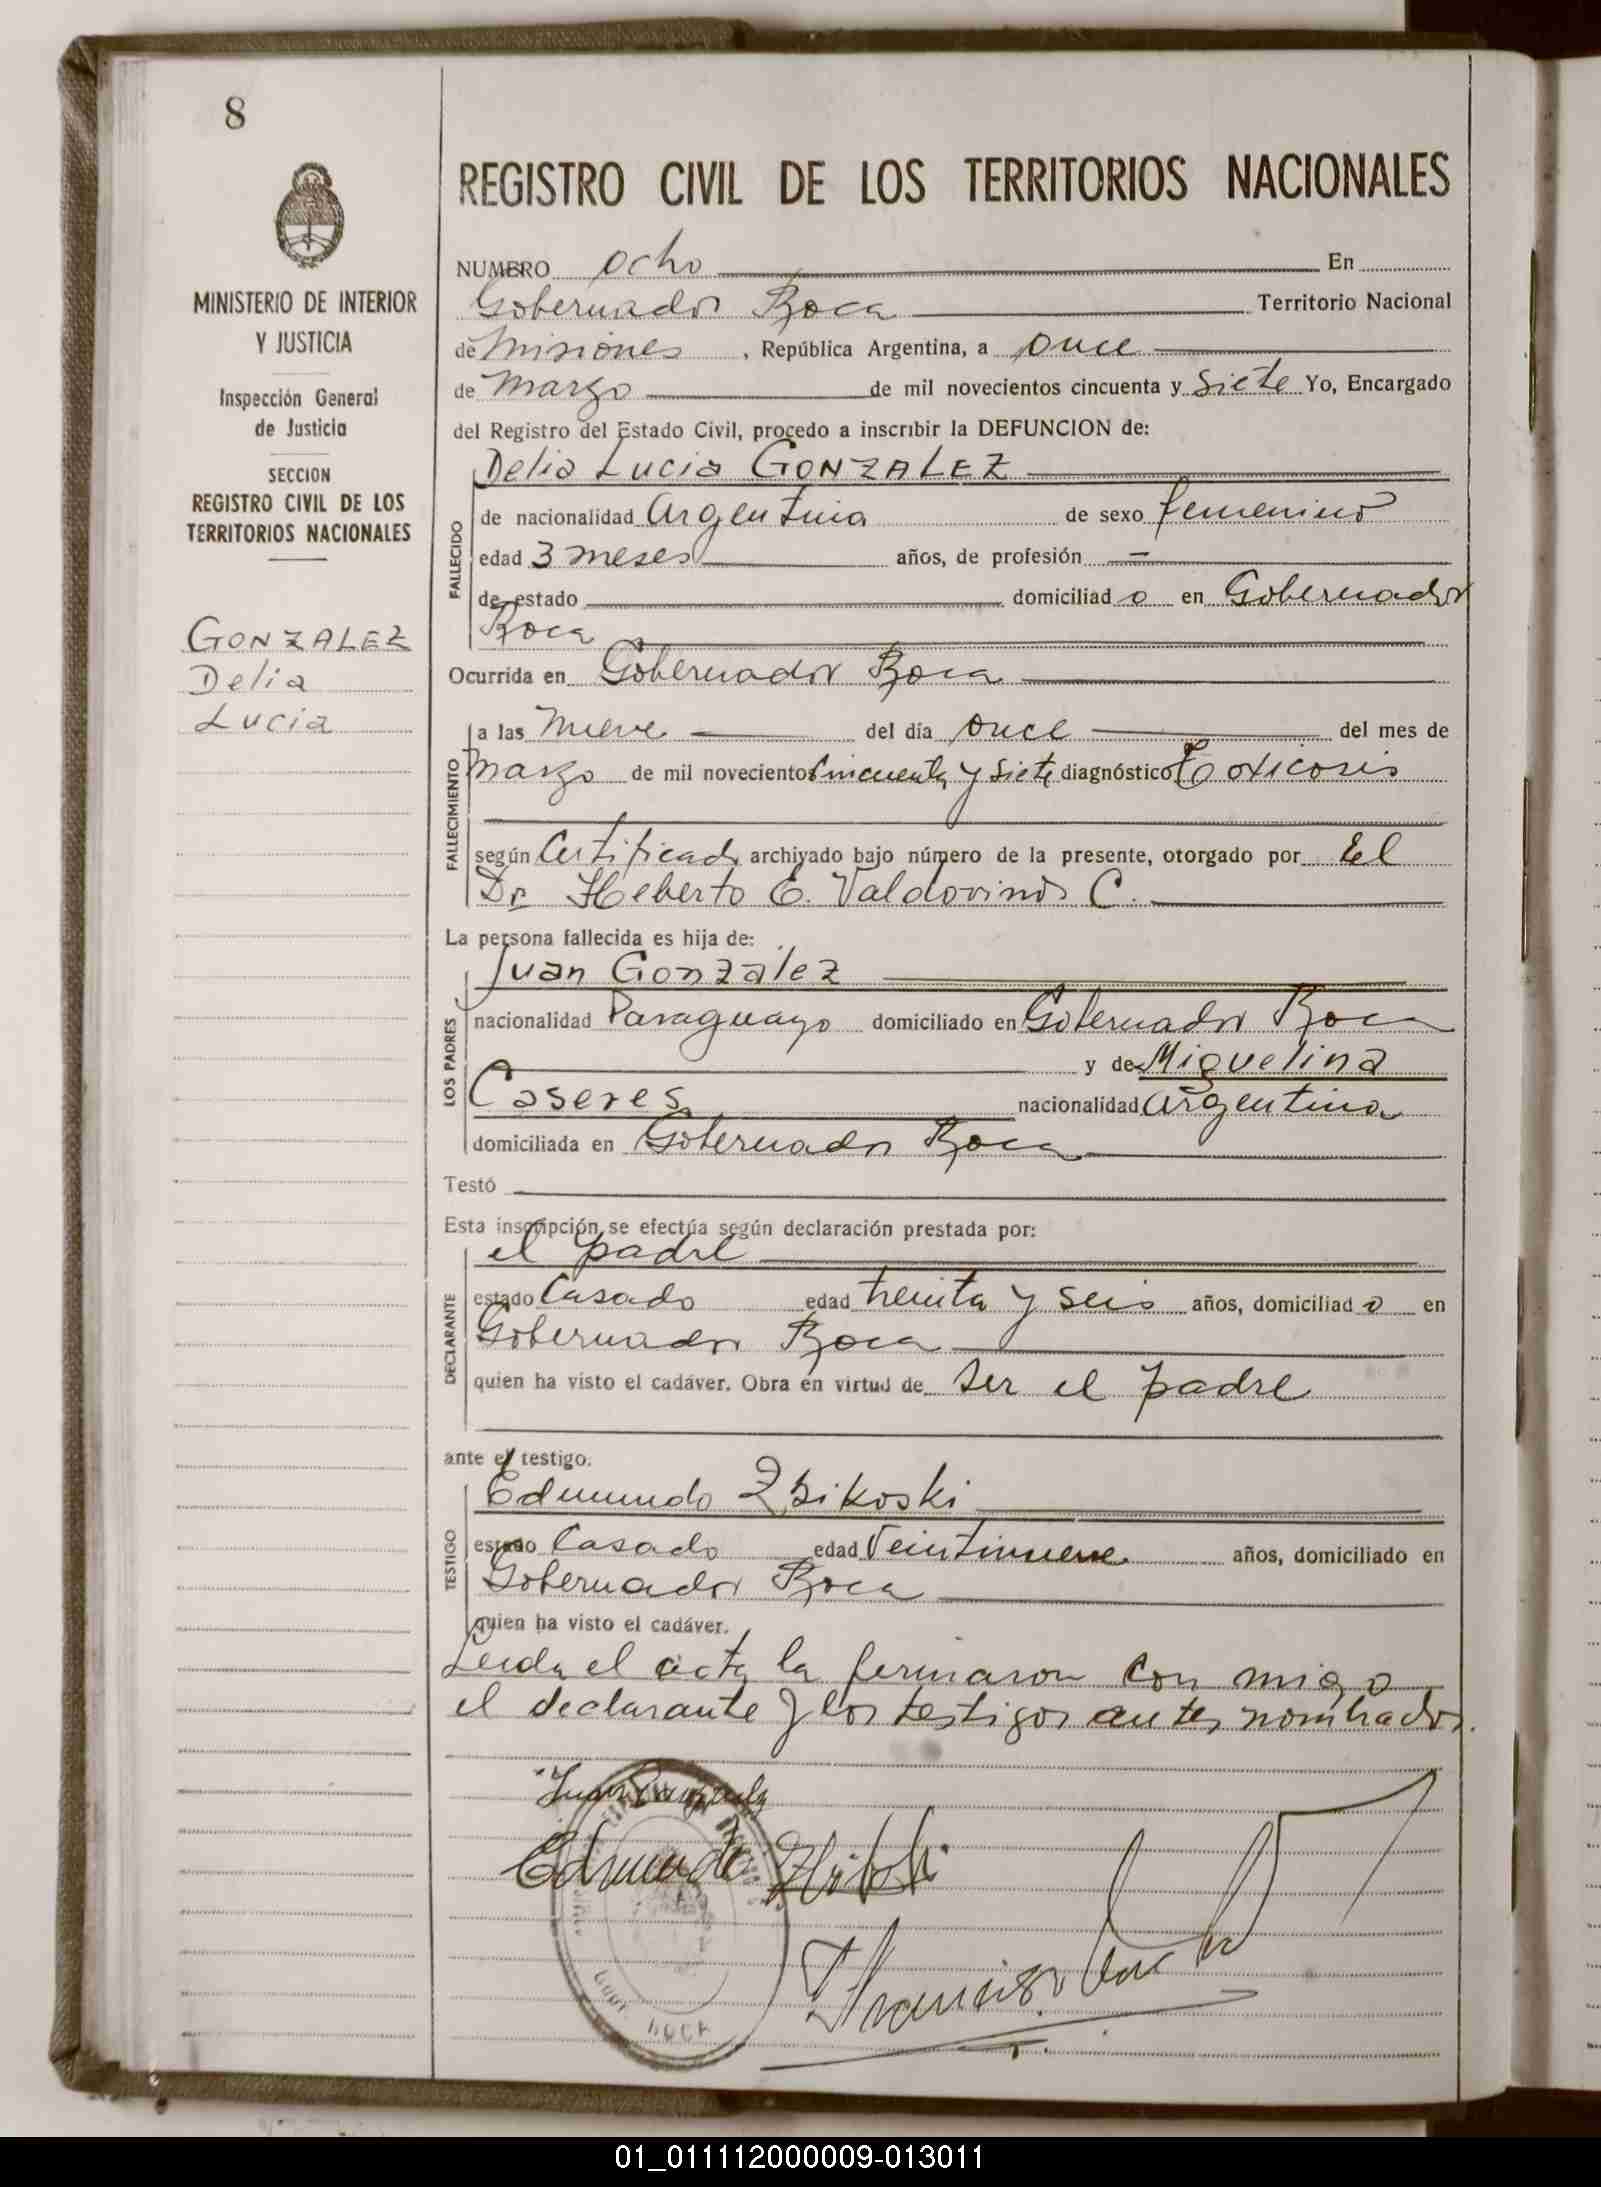 8
MINISTERIO DE INTERIOR
Y JUSTICIA
Inspección General
de Justicia
SECCION
REGISTRO CIVIL DE LOS
TERRITORIOS NACIONALES
GONZALEZ
Delia
Lucia
REGISTRO CIVIL DE LOS TERRITORIOS NACIONALES
NUMERO ocho En
Gobernador Roca Territorio Nacional
de Misiones, República Argentina, a once
de Marzo de mil novecientos cincuenta y siete Yo, Encargado
del Registro del Estado Civil, procedo a inscribir la DEFUNCION de:
Delia Lucia GONZALEZ
FALLECIDO
de nacionalidad Argentina de sexo femenino
edad 3 meses años, de profesión —
de estado domiciliado en Gobernador
Roca
Ocurrida en Gobernador Roca
FALLECIMIENTO
a las nueve del día once del mes de
Marzo de mil novecientos cincuenta y siete diagnóstico Toxicosis
según Certificado archivado bajo número de la presente, otorgado por El
Dr. Heberto E. Valdovinos C.
La persona fallecida es hija de:
LOS PADRES
Juan Gonzalez
nacionalidad Paraguayo domiciliado en Gobernador Roca
y de Miquelina
Caseres nacionalidad Argentina
domiciliada en Gobernador Roca
Testó
Esta inscripción se efectúa según declaración prestada por:
DECLARANTE
el padre
estado Casado edad treinta y seis años, domiciliado en
Gobernador Roca
quien ha visto el cadáver. Obra en virtud de ser el padre
ante el testigo.
TESTIGO
Edmundo Zbikoski
estado Casado edad Veintinueve años, domiciliado en
Gobernador Roca
quien ha visto el cadáver.
Leida el acta la firmaron con migo
el declarante y los testigos antes nombrados.
Juan Gonzalez
Edmundo Zbikoski
Francisco
ROCA
01_011112000009-013011